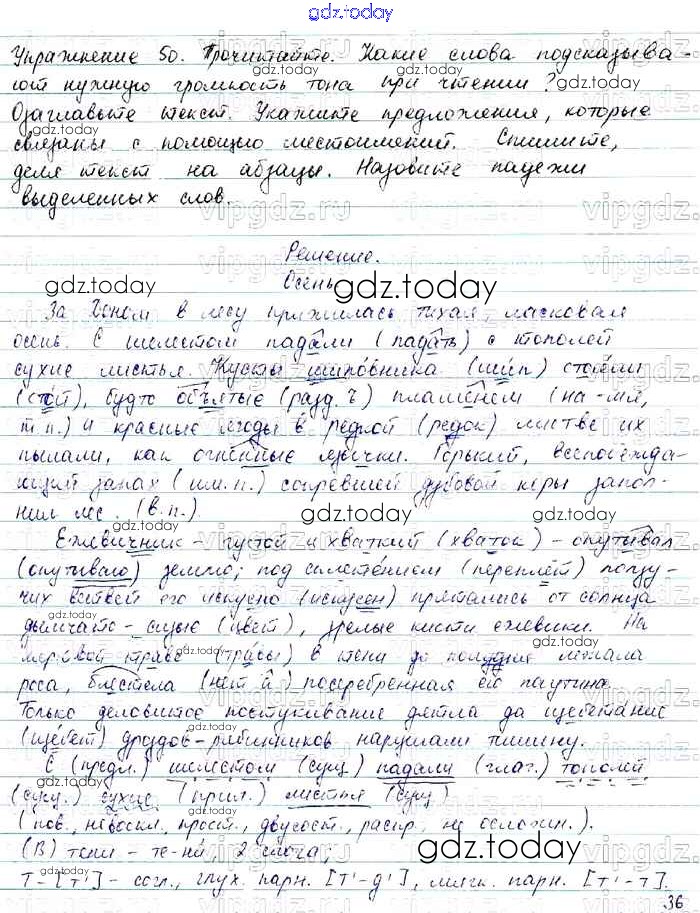 gdz.today
Упражнение 50. Прочитайте. Какие слова подсказыва-
ют нужную громкость тона при чтении?
Озаглавьте текст. Укажите предложения, которые
связаны с помощью местоимений. Спишите,
деля текст на абзацы. Назовите падежи
выделенных слов.
Решение.
Осень
За Доном в лесу прижилась тихая, ласковая
осень. С шелестом падали (падать) с тополей
сухие листья. Кусты шиповника (шип) стояли
(стой), будто объятые (разд. ъ) пламенем (на -мя,
т.п.) и красные ягоды в редкой (редок) листве их
пылали, как огненные язычки. Горький, всепобежда-
ющий запах (им.п.) сопревшей дубовой коры запол-
нил лес. (в.п.).
Ежевичник - густой и хваткий (хваток) - опутывал
(опутываю) землю; под сплетением (переплёт) ползу-
чих ветвей его искусно (искусен) прятались от солнца
дымчато-сизые (цвет), зрелые кисти ежевики. На
траве (травы) в тени до полудня лежала
роса, блестела (нет а) посеребренная ею паутина.
Только деловитое постукивание дятла да щебетание
(щебет) дроздов-рябинников нарушали тишину.
С (предл.) шелестом (сущ.) падали (глаг.) тополей
(сущ.) сухие (прил.) листья (сущ.)
(пов., невоскл., прост., двусост., распр., не осложн.).
(В) тени - те-ни, 2 слога;
т - [т'] - согл., глух. парн. [т'-д'], мягк. парн. [т'-т].
36